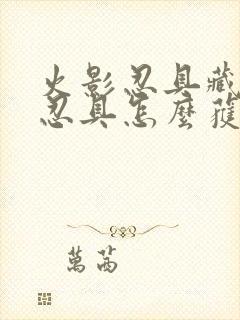 火影忍具藏
忍具怎麼獲
萬茜